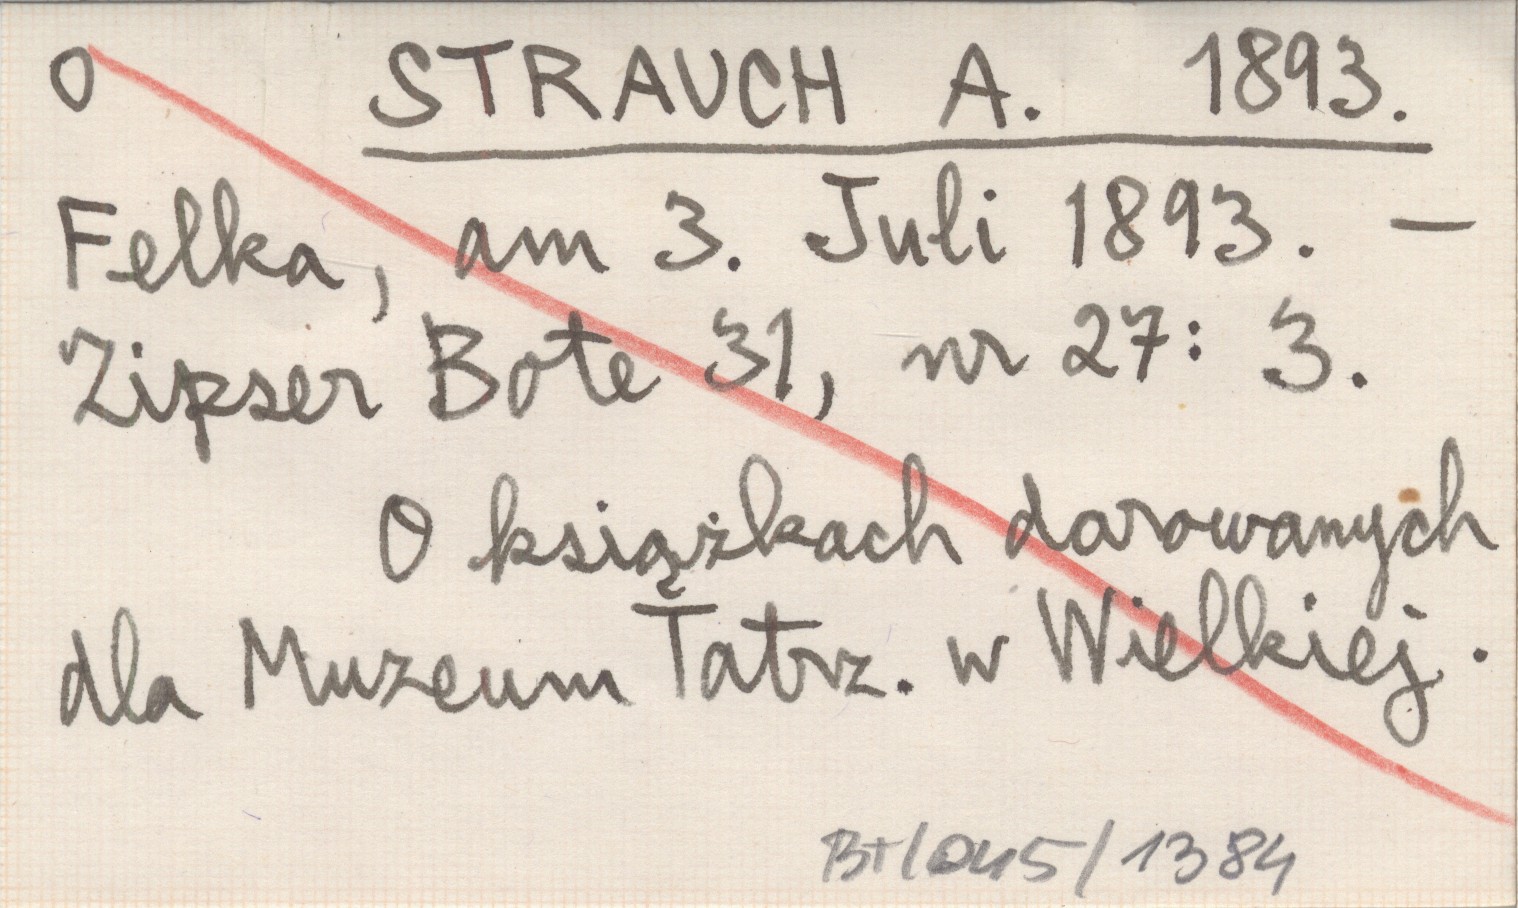 O STRAUCH A. 1893.
Felka, am 3. Juli 1893. —
Zipser Bote 31, nr 27: 3.
O książkach darowanych
dla Muzeum Tatrz. w Wielkiej.
BT/045/1384